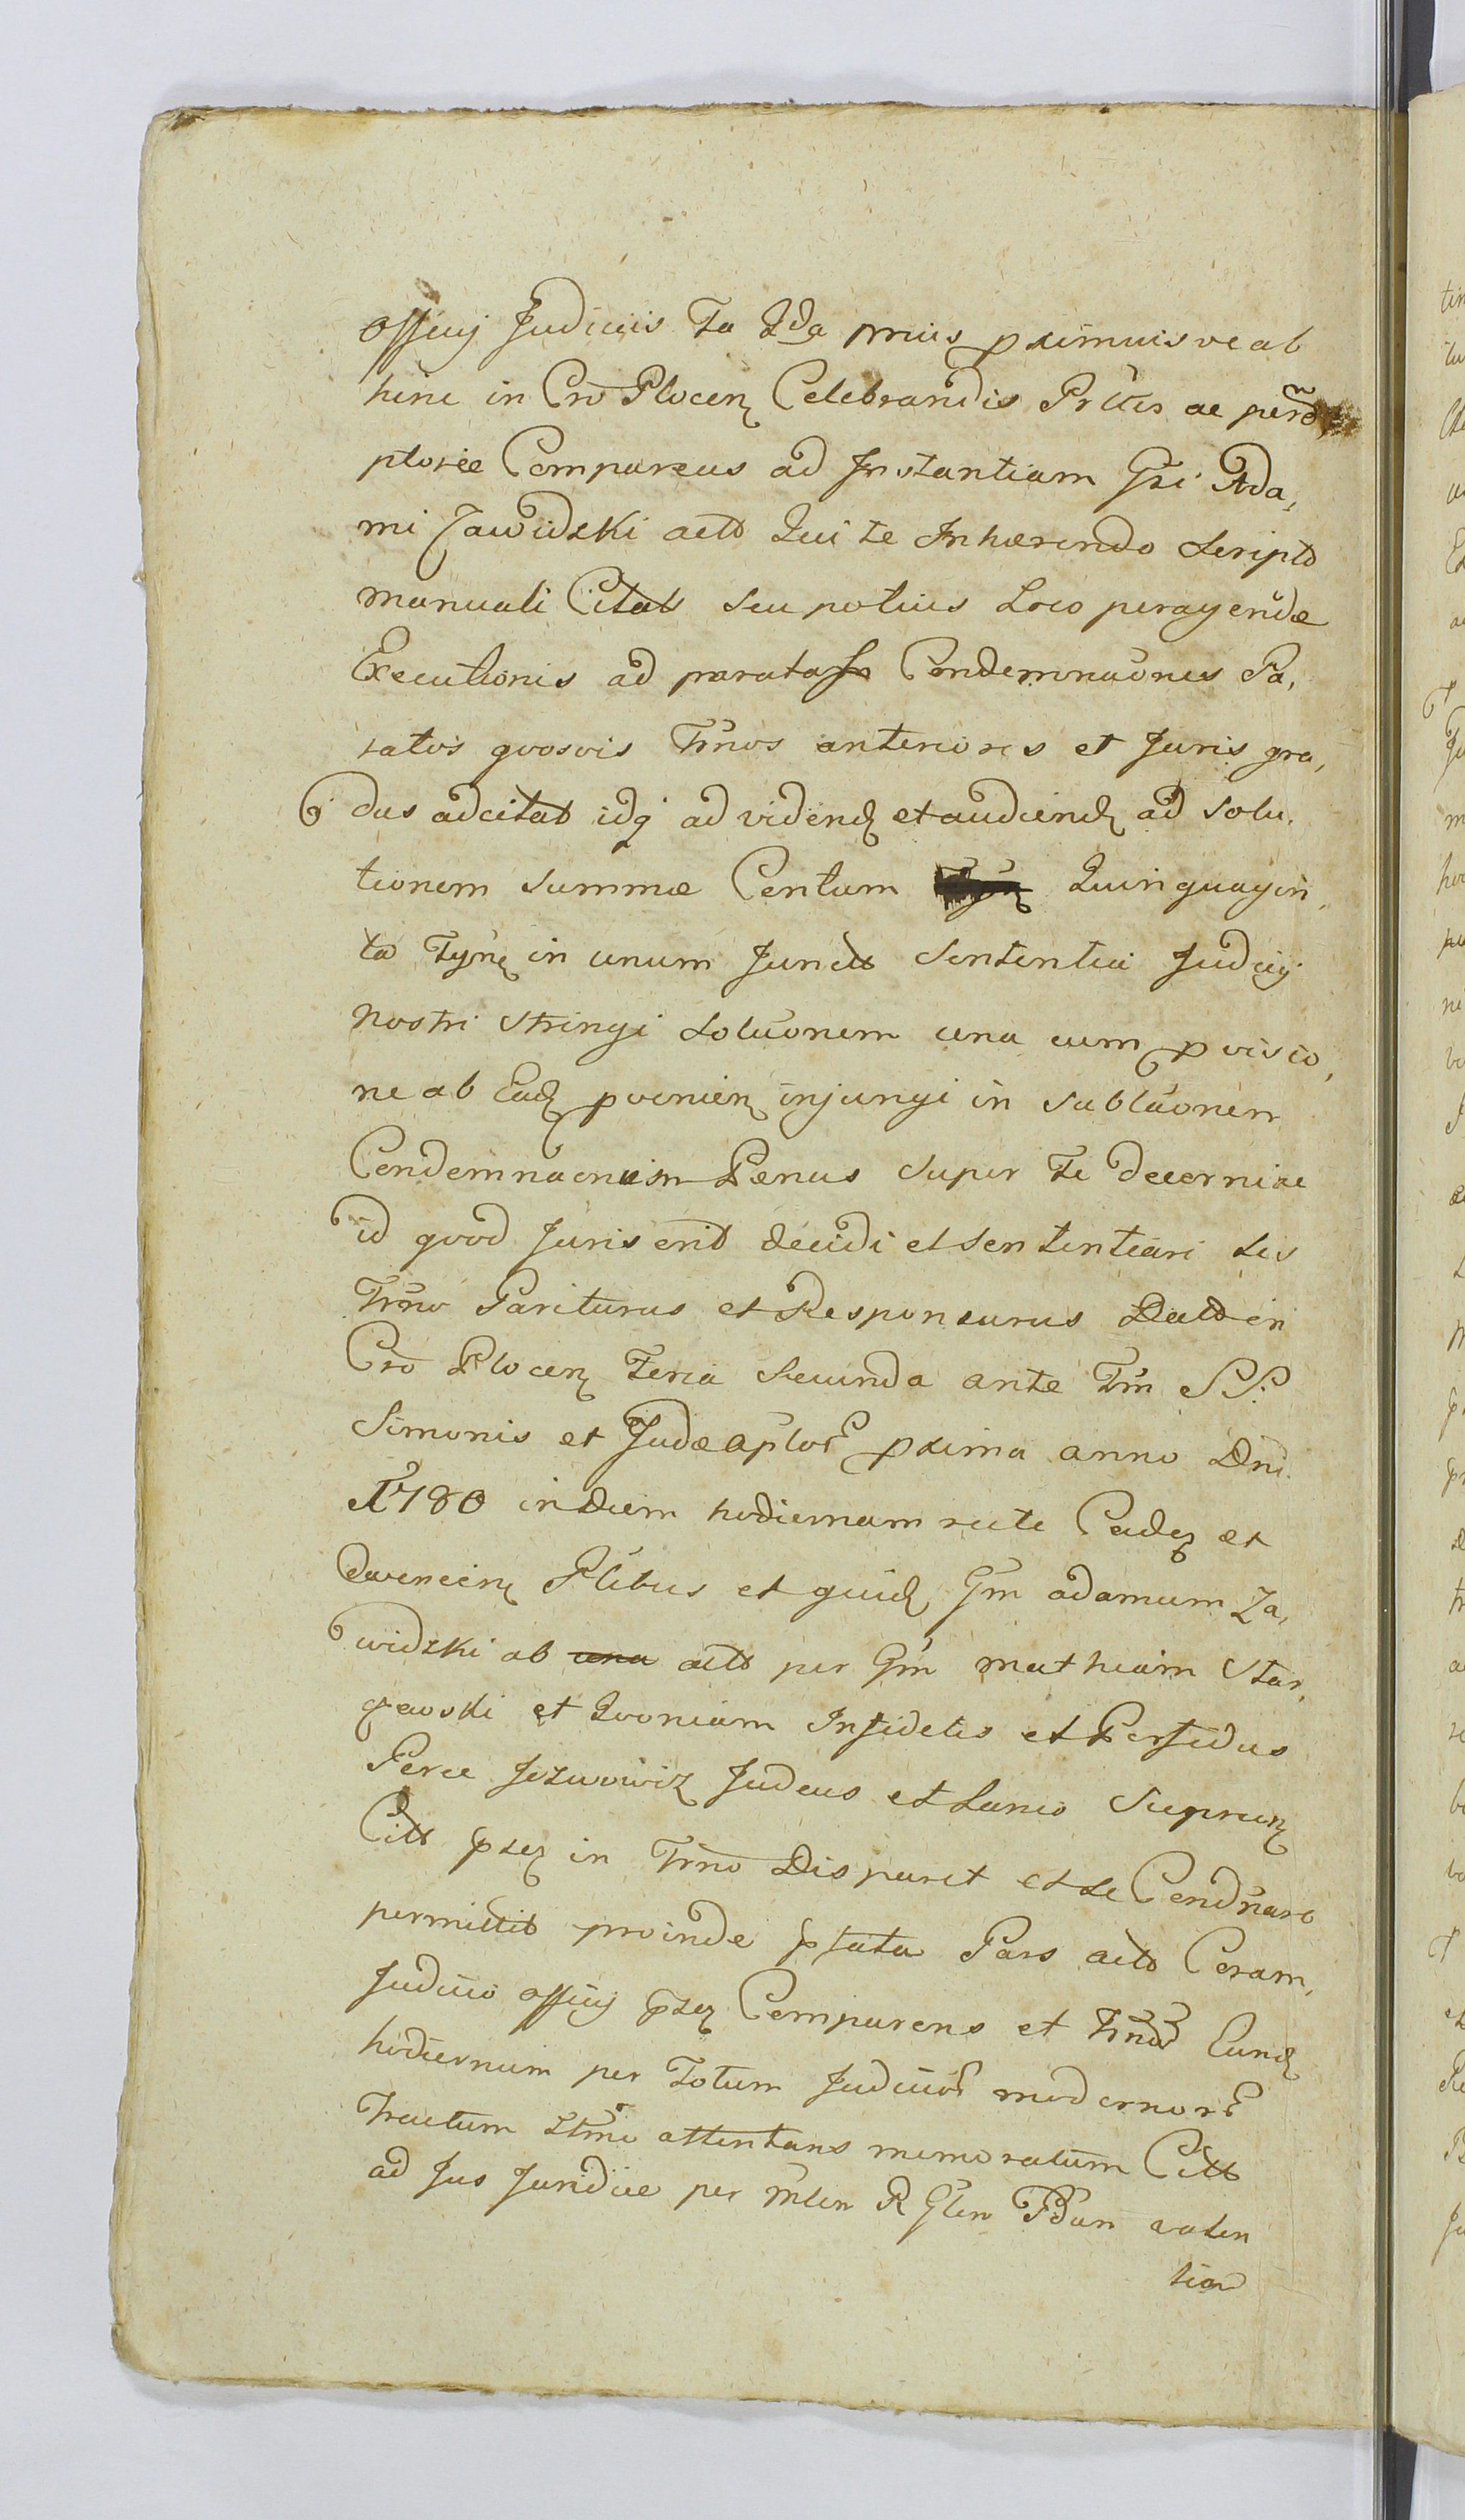 Officij Judiciis Ta Qda prius pximuis ve ab
hinc in Cro Plocen Celebrandis Prltis ac perem,
ptorie Compareas ad Instantiam Gsi Ada,
mi Zawidzki actt Qui te Inhærendo Scripto
manuali Citat seu potius Loco peragendæ
Executionis ad paratass Condemnaones Pa,
ratos quosvis Trnos anteriores et Juris gra,
dus adcitat idq ad vidend et audiend ad Solu,
tionem Summæ Centum Quinquagin,
ta Tynf in unum Junctt Sententia Judicij
nostri Stringi Soluonem una cum pvisio,
ne ab Ead pvenien injungi in Sublaonem
Condemnaonum Pænas super Te decerni ac
id quod Juris erit decidi et Sententiari Sis
Trno Pariturus et Responsurus Datt in
Cro Plocen Feria Secunda ante Fm S S.
Simonis et Judæ aplor pxima anno Dni
1780 in Diem hodiernam recte Caden et
Evenien Pltibus et quid Gm adamum Za,
widzki ab una actt per Gm Mathiam Star,
czewski et Quoniam Infidelis et Perfidus
Perec Jezuowiz Judeus et Lanio Sieprcen
Citt psen in Trno Disparet et Se Condnare
permittit proinde pfata Pars actt Coram,
Judicio officij psen Comparens et Trnu Eund
hodiernum per Totum Judicior modernor
Tractum Ltme attentans memoratum Citt
ad Jus Juridice per mlem R Glem Ban vocten
tior